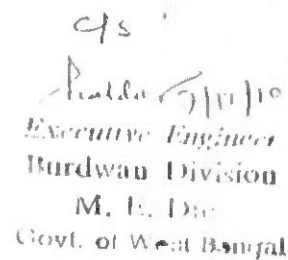 C/S
Executive Engineer
Burdwan Division
M. E. Dte
Govt. of West Bengal